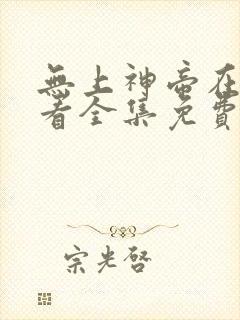 無上神帝在
看全集免費
宗光啓